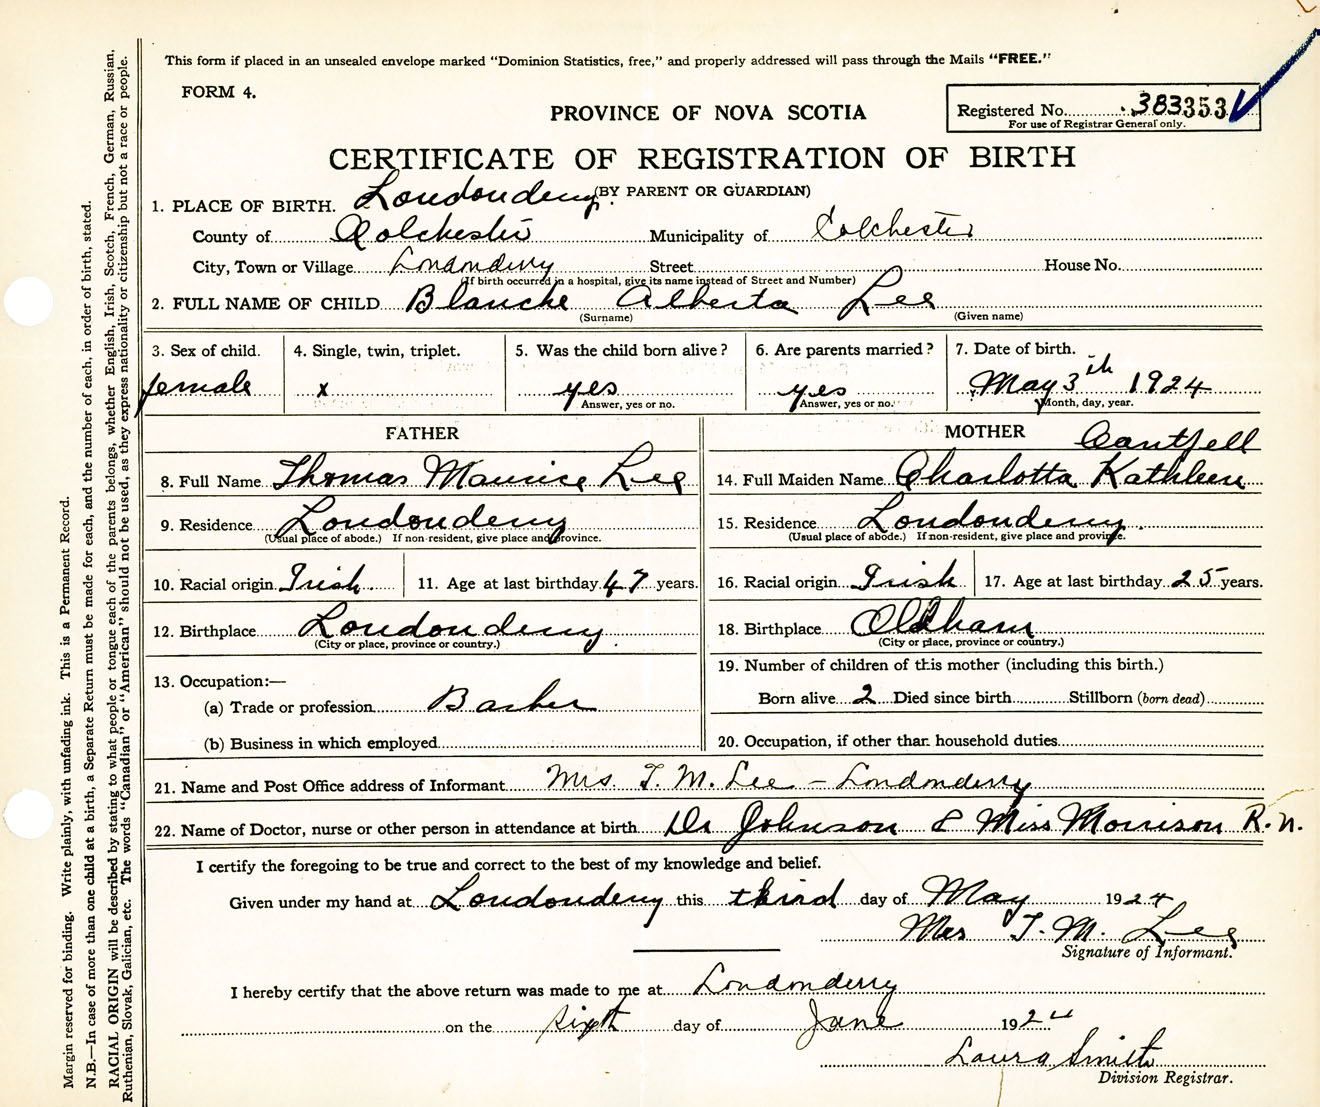 This form if placed in an unsealed envelope marked "Dominion Statistics, free," and properly addressed will pass through the Mails "FREE."
FORM 4.
PROVINCE OF NOVA SCOTIA
Registered No. 383353
For use of Registrar General only.
CERTIFICATE OF REGISTRATION OF BIRTH
(BY PARENT OR GUARDIAN)
1. PLACE OF BIRTH. Londonderry.
County of Colchester Municipality of Colchester
City, Town or Village Londonderry Street House No.
(If birth occurred in a hospital, give its name instead of Street and Number)
2. FULL NAME OF CHILD Blanche Alberta Lee
(Surname) (Given name)
3. Sex of child. 4. Single, twin, triplet. 5. Was the child born alive? 6. Are parents married? 7. Date of birth.
female x yes yes May 3th 1924
Answer, yes or no. Answer, yes or no. Month, day, year.
FATHER MOTHER Cantfell
8. Full Name Thomas Maurice Lee 14. Full Maiden Name Charlotta Kathleen
9. Residence Londonderry 15. Residence Londonderry.
(Usual place of abode.) If non-resident, give place and province. (Usual place of abode.) If non-resident, give place and province.
10. Racial origin Irish. 11. Age at last birthday 47 years. 16. Racial origin Irish 17. Age at last birthday 25 years.
12. Birthplace Londonderry. 18. Birthplace Oldham
(City or place, province or country.) (City or place, province or country.)
19. Number of children of this mother (including this birth.)
13. Occupation:—
(a) Trade or profession Barber Born alive 2 Died since birth Stillborn (born dead)
(b) Business in which employed 20. Occupation, if other than household duties
21. Name and Post Office address of Informant Mrs. T. M. Lee - Londonderry
22. Name of Doctor, nurse or other person in attendance at birth Dr Johnson & Miss Morrison R.N.
I certify the foregoing to be true and correct to the best of my knowledge and belief.
Given under my hand at Londonderry this third day of May 1924
Mrs T. M. Lee
Signature of Informant.
I hereby certify that the above return was made to me at Londonderry
on the sixth day of June 1924
Laura Smith
Division Registrar.
Margin reserved for binding. Write plainly, with unfading ink. This is a Permanent Record.
N.B.—In case of more than one child at a birth, a Separate Return must be made for each, and the number of each, in order of birth, stated.
RACIAL ORIGIN will be described by stating to what people or tongue each of the parents belongs, whether English, Irish, Scotch, French, German, Russian,
Ruthenian, Slovak, Galician, etc. The words "Canadian" or "American" should not be used, as they express nationality or citizenship but not a race or people.